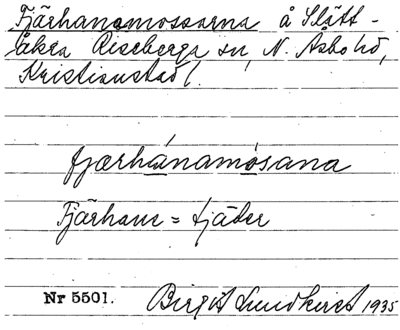 Fjärhanamossarna å Slätt-
åkra Riseberga sn, N. Åsbo hd,
Kristianstad l.
fjærhánamosana
Fjärhane = tjäder
Nr 5501. Birgit Lundkvist 1935